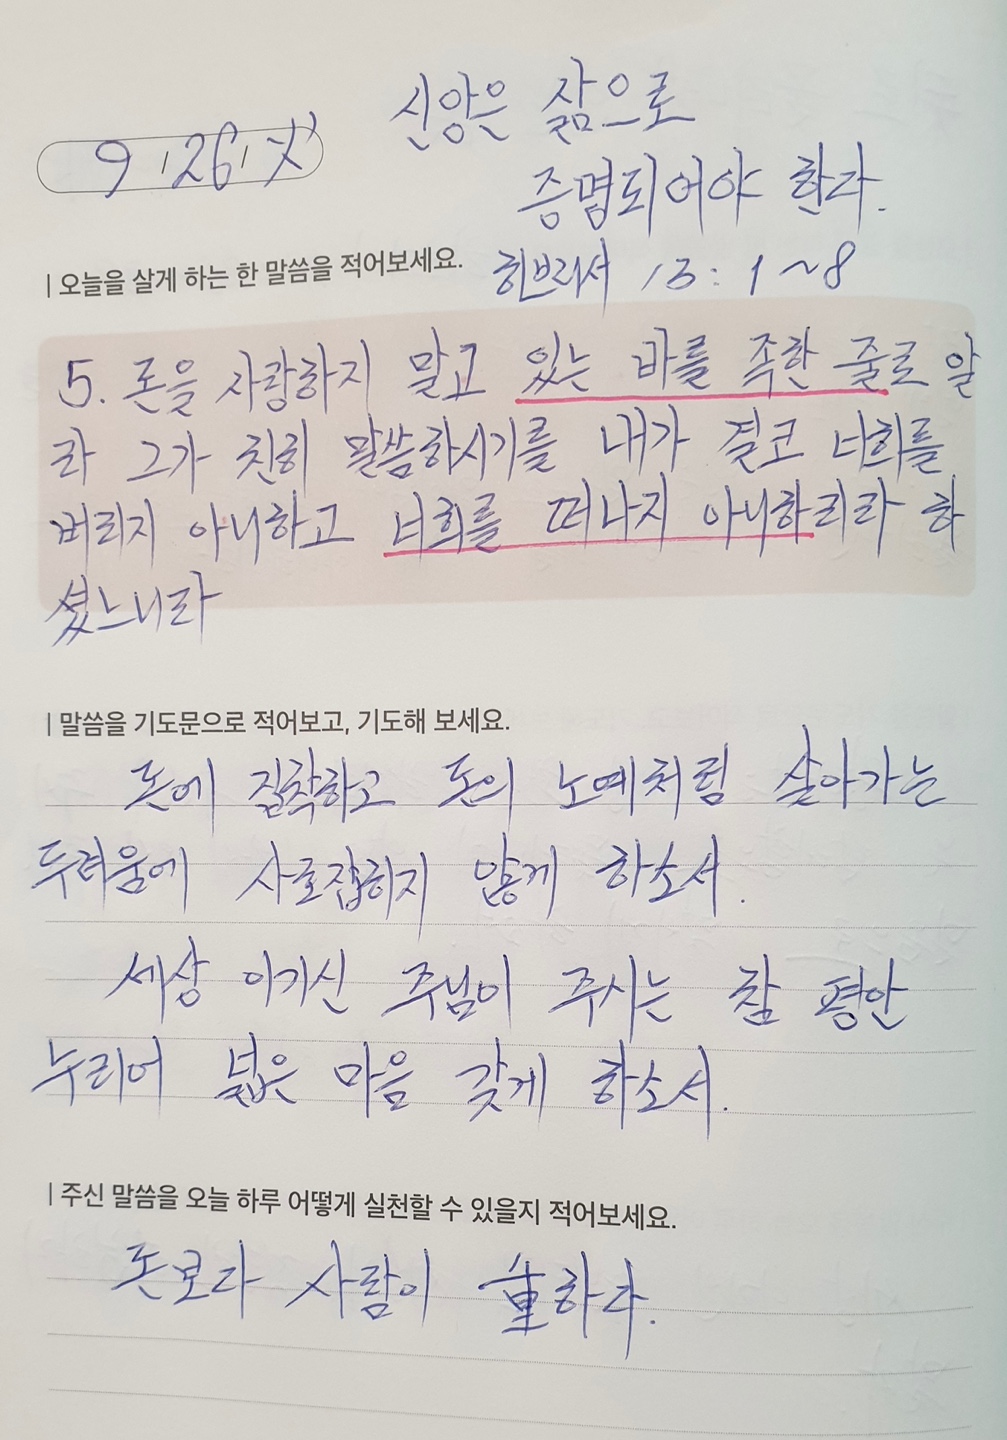 신앙은 삶으로
9. 26. 火
증명되어야 한다.
| 오늘을 살게 하는 한 말씀을 적어보세요.
히브리서 13:1~8
5. 돈을 사랑하지 말고 있는 바를 족한 줄로 알
라 그가 친히 말씀하시기를 내가 결코 너희를
버리지 아니하고 너희를 떠나지 아니하리라 하
셨느니라
| 말씀을 기도문으로 적어보고, 기도해 보세요.
돈에 질착하고 돈의 노예처럼 살아가는
두려움에 사로잡히지 않게 하소서.
세상 이기신 주님이 주시는 참 평안
누리어 넓은 마음 갖게 하소서.
| 주신 말씀을 오늘 하루 어떻게 실천할 수 있을지 적어보세요.
돈보다 사람이 重하다.